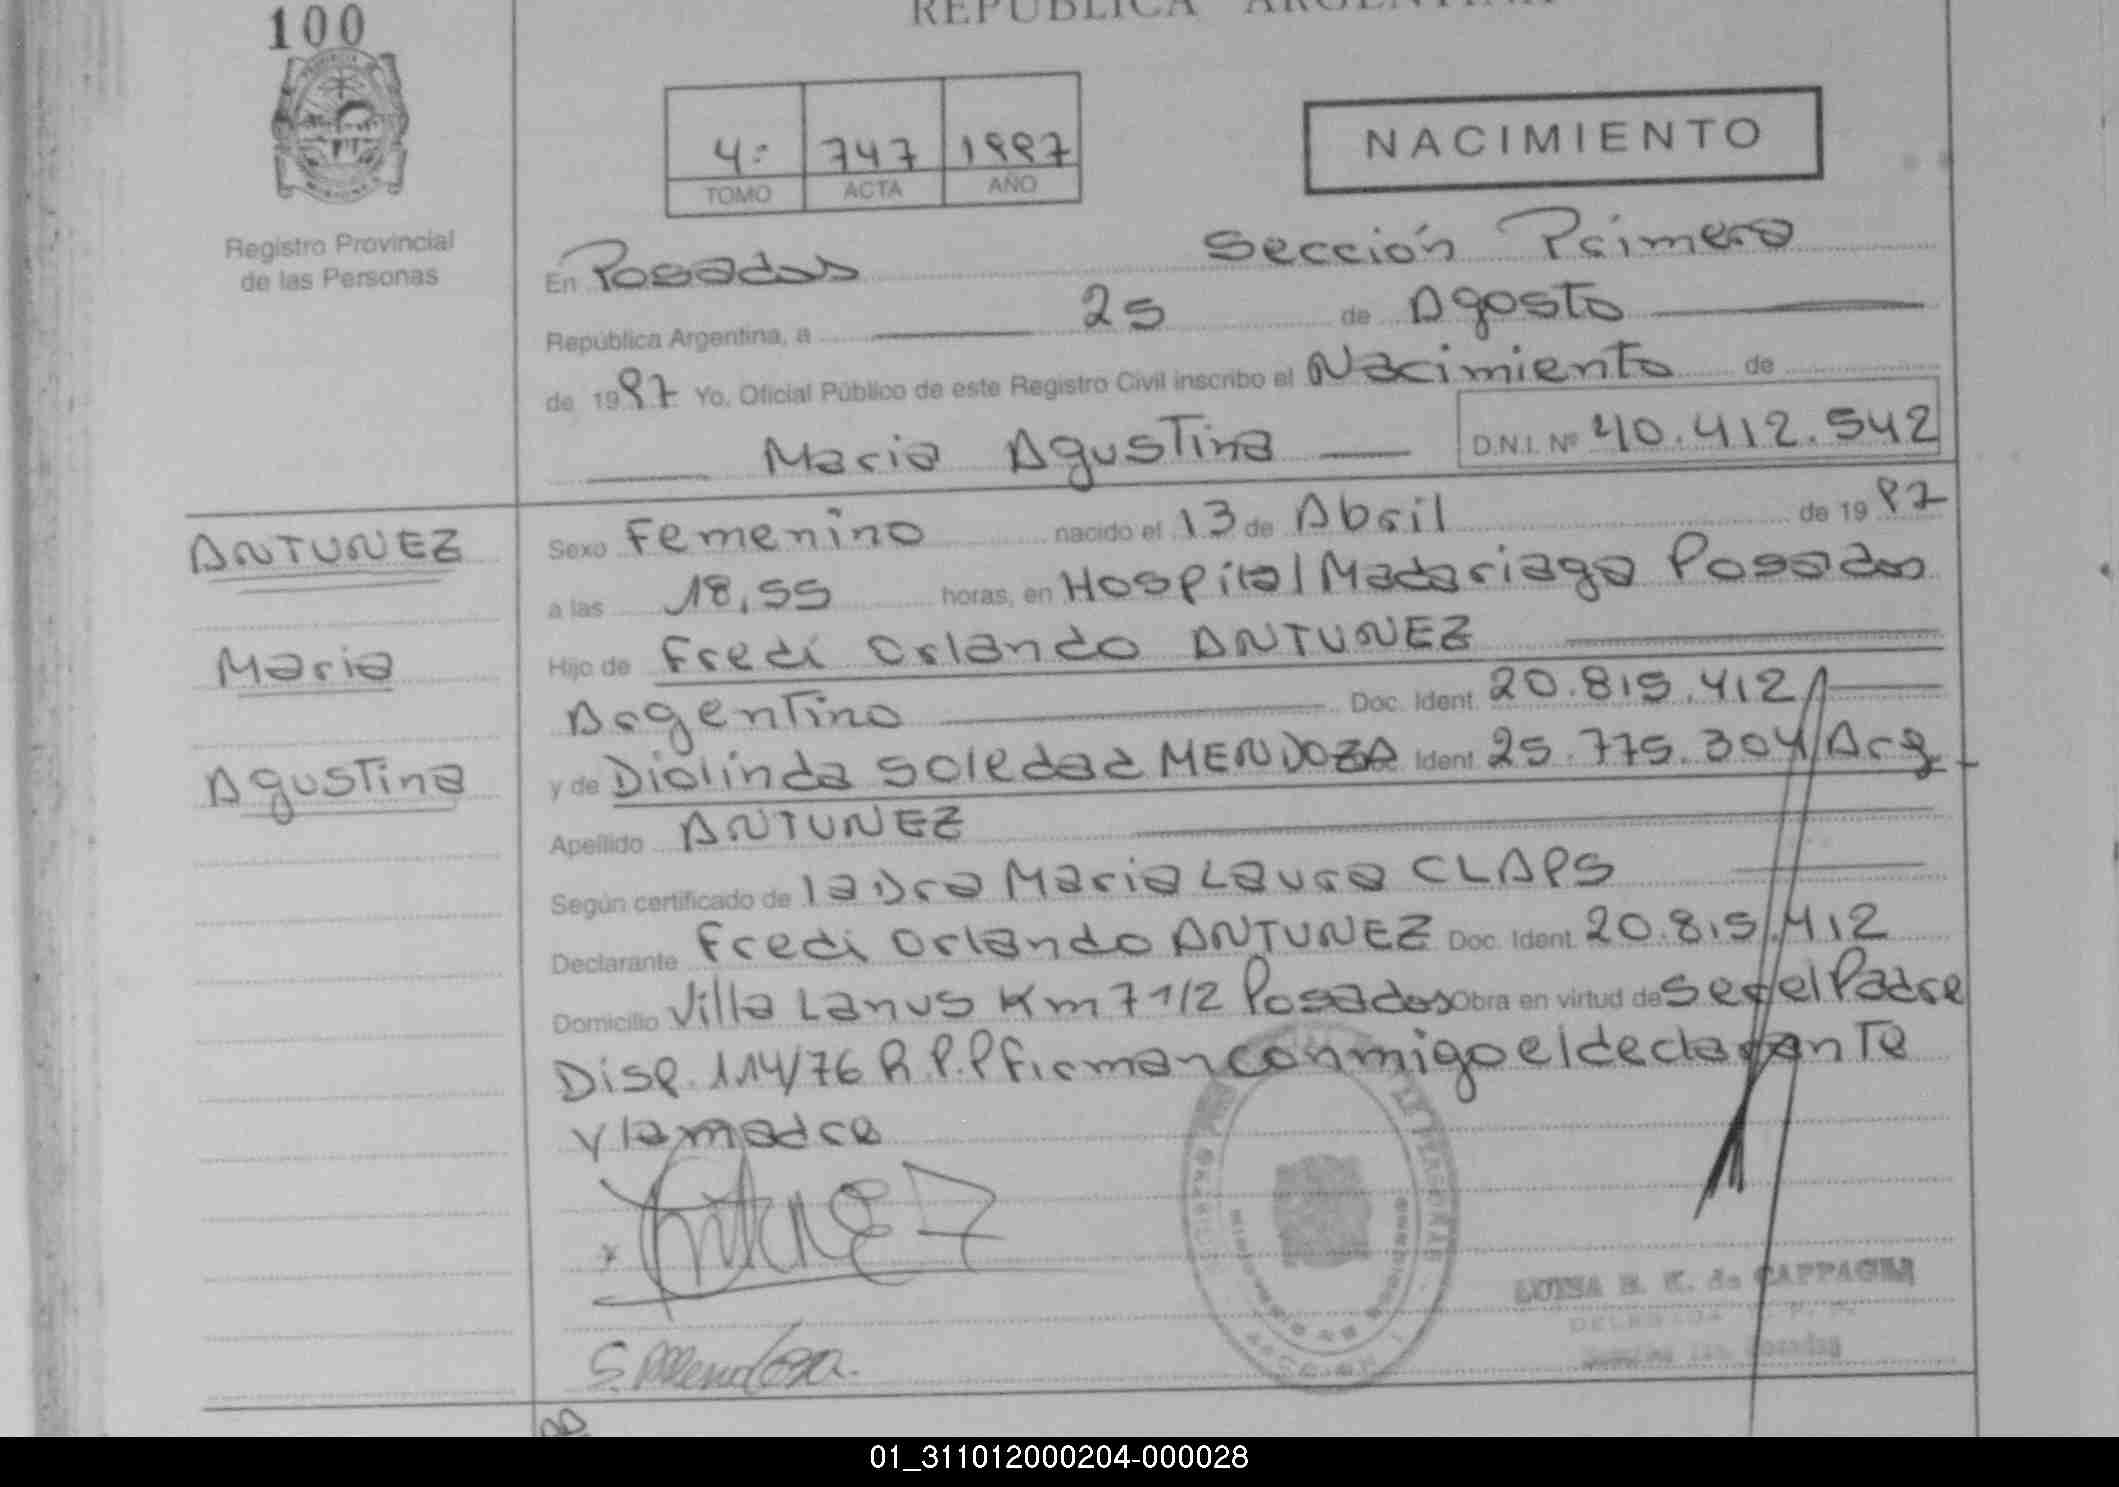 100
REPUBLICA ARGENTINA
4º 747 1997
TOMO ACTA AÑO
NACIMIENTO
Registro Provincial
de las Personas
En Posadas Sección Primera
República Argentina, a 25 de Agosto
de 1997 Yo, Oficial Público de este Registro Civil inscribo el Nacimiento de
Maria Agustina D.N.I. Nº 40.412.542
ANTUNEZ
Maria
Agustina
Sexo Femenino nacido el 13 de Abril de 1997
a las 18,55 horas, en Hospital Madariaga Posadas
Hijo de Fredi Orlando ANTUNEZ
Argentino Doc. Ident. 20.815.412
y de Diolinda Soledad MENDOZA Ident. 25.775.304/Arg
Apellido ANTUNEZ
Según certificado de la Dra Maria Laura CLAPS
Declarante Fredi Orlando ANTUNEZ Doc. Ident. 20.815.412
Domicilio Villa Lanus Km 7 1/2 Posadas Obra en virtud de ser el Padre
Disp. 114/76 R.P.P firman conmigo el declarante
y la madre
Antunez
S. Mendoza.
LUISA de CAPPAGLI
01_311012000204-000028